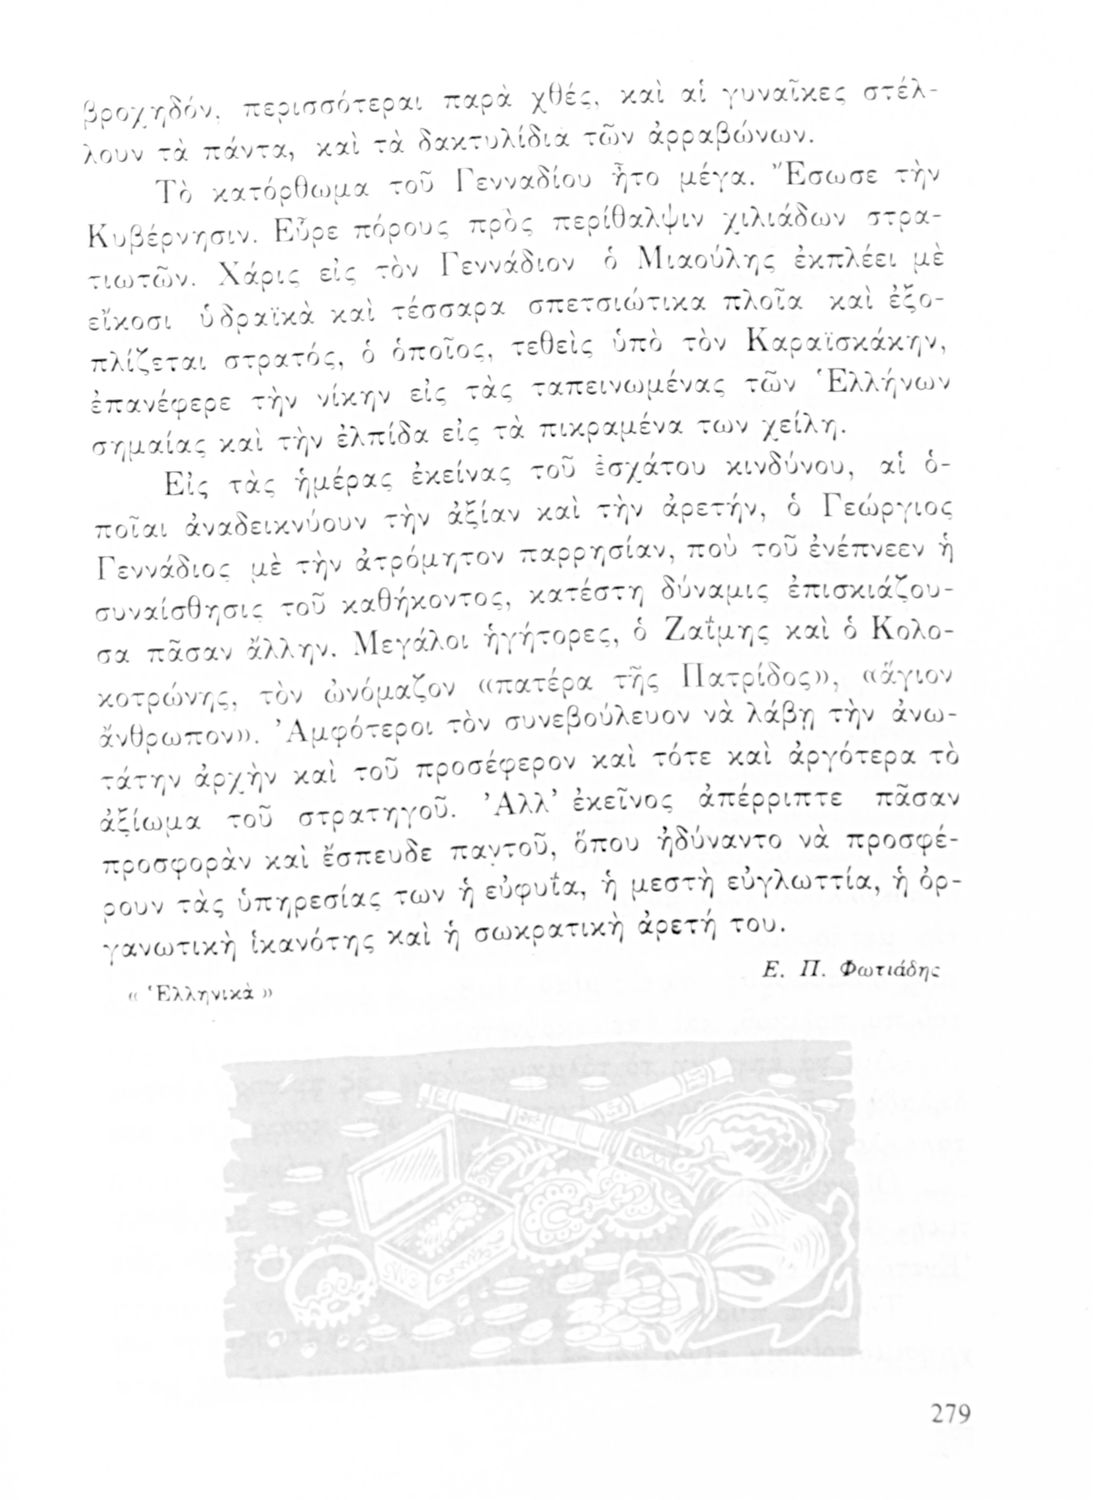 βροχηδόν, περισσότεραι παρὰ χθές, καὶ αἱ γυναῖκες στέλ-
λουν τὰ πάντα, καὶ τὰ δακτυλίδια τῶν ἀρραβώνων.
Τὸ κατόρθωμα τοῦ Γενναδίου ἦτο μέγα. Ἔσωσε τὴν
Κυβέρνησιν. Εὗρε πόρους πρὸς περίθαλψιν χιλιάδων στρα-
τιωτῶν. Χάρις εἰς τὸν Γεννάδιον ὁ Μιαούλης ἐκπλέει μὲ
εἴκοσι ὑδραϊκὰ καὶ τέσσαρα σπετσιώτικα πλοῖα καὶ ἐξο-
πλίζεται στρατός, ὁ ὁποῖος, τεθεὶς ὑπὸ τὸν Καραϊσκάκην,
ἐπανέφερε τὴν νίκην εἰς τὰς ταπεινωμένας τῶν Ἑλλήνων
σημαίας καὶ τὴν ἐλπίδα εἰς τὰ πικραμένα των χείλη.
Εἰς τὰς ἡμέρας ἐκείνας τοῦ ἐσχάτου κινδύνου, αἱ ὁ-
ποῖαι ἀναδεικνύουν τὴν ἀξίαν καὶ τὴν ἀρετήν, ὁ Γεώργιος
Γεννάδιος μὲ τὴν ἀτρόμητον παρρησίαν, ποὺ τοῦ ἐνέπνεεν ἡ
συναίσθησις τοῦ καθήκοντος, κατέστη δύναμις ἐπισκιάζου-
σα πᾶσαν ἄλλην. Μεγάλοι ἡγήτορες, ὁ Ζαΐμης καὶ ὁ Κολο-
κοτρώνης, τὸν ὠνόμαζον «πατέρα τῆς Πατρίδος», «ἅγιον
ἄνθρωπον». Ἀμφότεροι τὸν συνεβούλευον νὰ λάβῃ τὴν ἀνω-
τάτην ἀρχὴν καὶ τοῦ προσέφερον καὶ τότε καὶ ἀργότερα τὸ
ἀξίωμα τοῦ στρατηγοῦ. Ἀλλ’ ἐκεῖνος ἀπέρριπτε πᾶσαν
προσφορὰν καὶ ἔσπευδε παντοῦ, ὅπου ἠδύναντο νὰ προσφέ-
ρουν τὰς ὑπηρεσίας των ἡ εὐφυΐα, ἡ μεστὴ εὐγλωττία, ἡ ὀρ-
γανωτικὴ ἱκανότης καὶ ἡ σωκρατικὴ ἀρετή του.
Ε. Π. Φωτιάδης
« Ἑλληνικὰ »
279